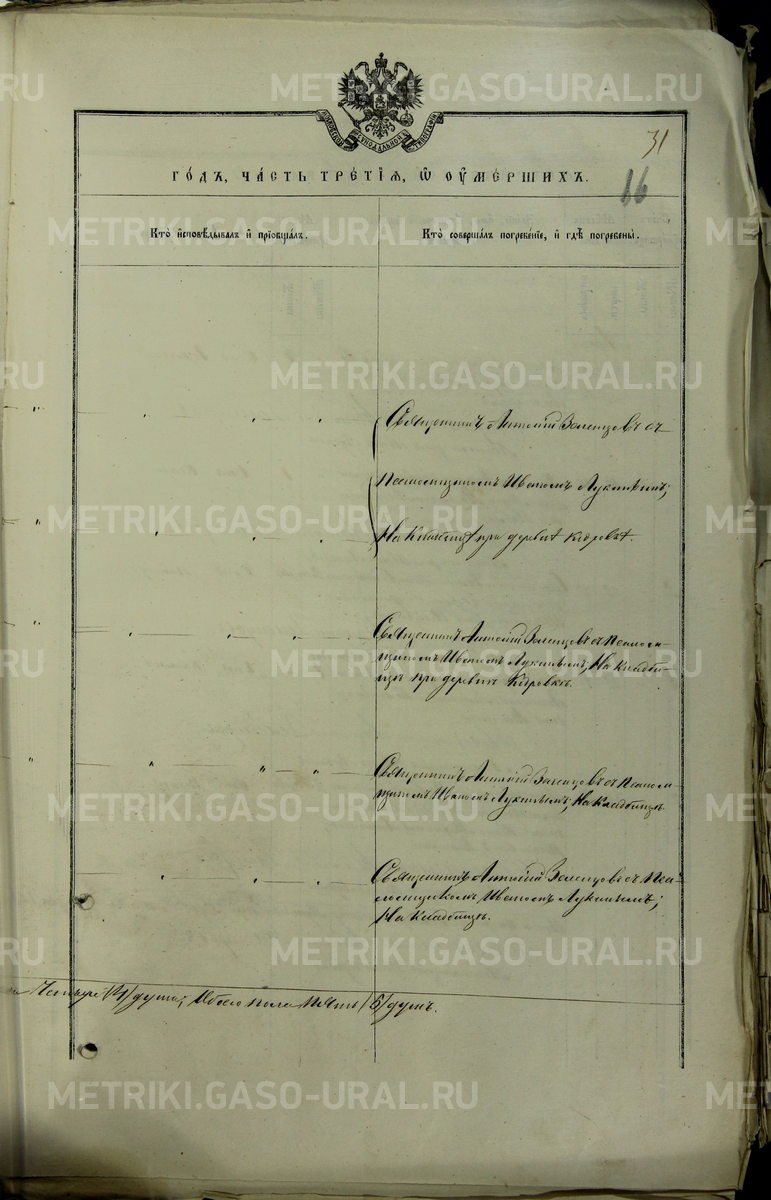 31
66
ГО́ДЪ, ЧА́СТЬ ТРЕ́ТІѦ, Ѡ ОУ҆МЕ́РШИХЪ.
Кто̀ и҆сповѣ́дывалъ и҆ прїѡбща́лъ.
Кто̀ соверша́лъ погребе́нїе, и҆ гдѣ̀ погребены̀.
Священникъ Антоній Зеленцовъ съ
Псаломщикомъ Иваномъ Лукинымъ;
На Кладбищѣ при деревнѣ
Священникъ Антоній Зеленцовъ съ Псалом-
щикомъ Иваномъ Лукинымъ, На Кладби-
щѣ при деревнѣ
Священникъ Антоній Зеленцовъ съ Псалом
щикомъ Иваномъ Лукинымъ; На Кладбищѣ
Священникъ Антоній Зеленцовъ съ Пса-
ломщикомъ Иваномъ Лукинымъ;
На Кладбищѣ.
Четыре /4/ душъ; Обоего пола Пять /5/ душъ.
METRIKI.GASO-URAL.RU